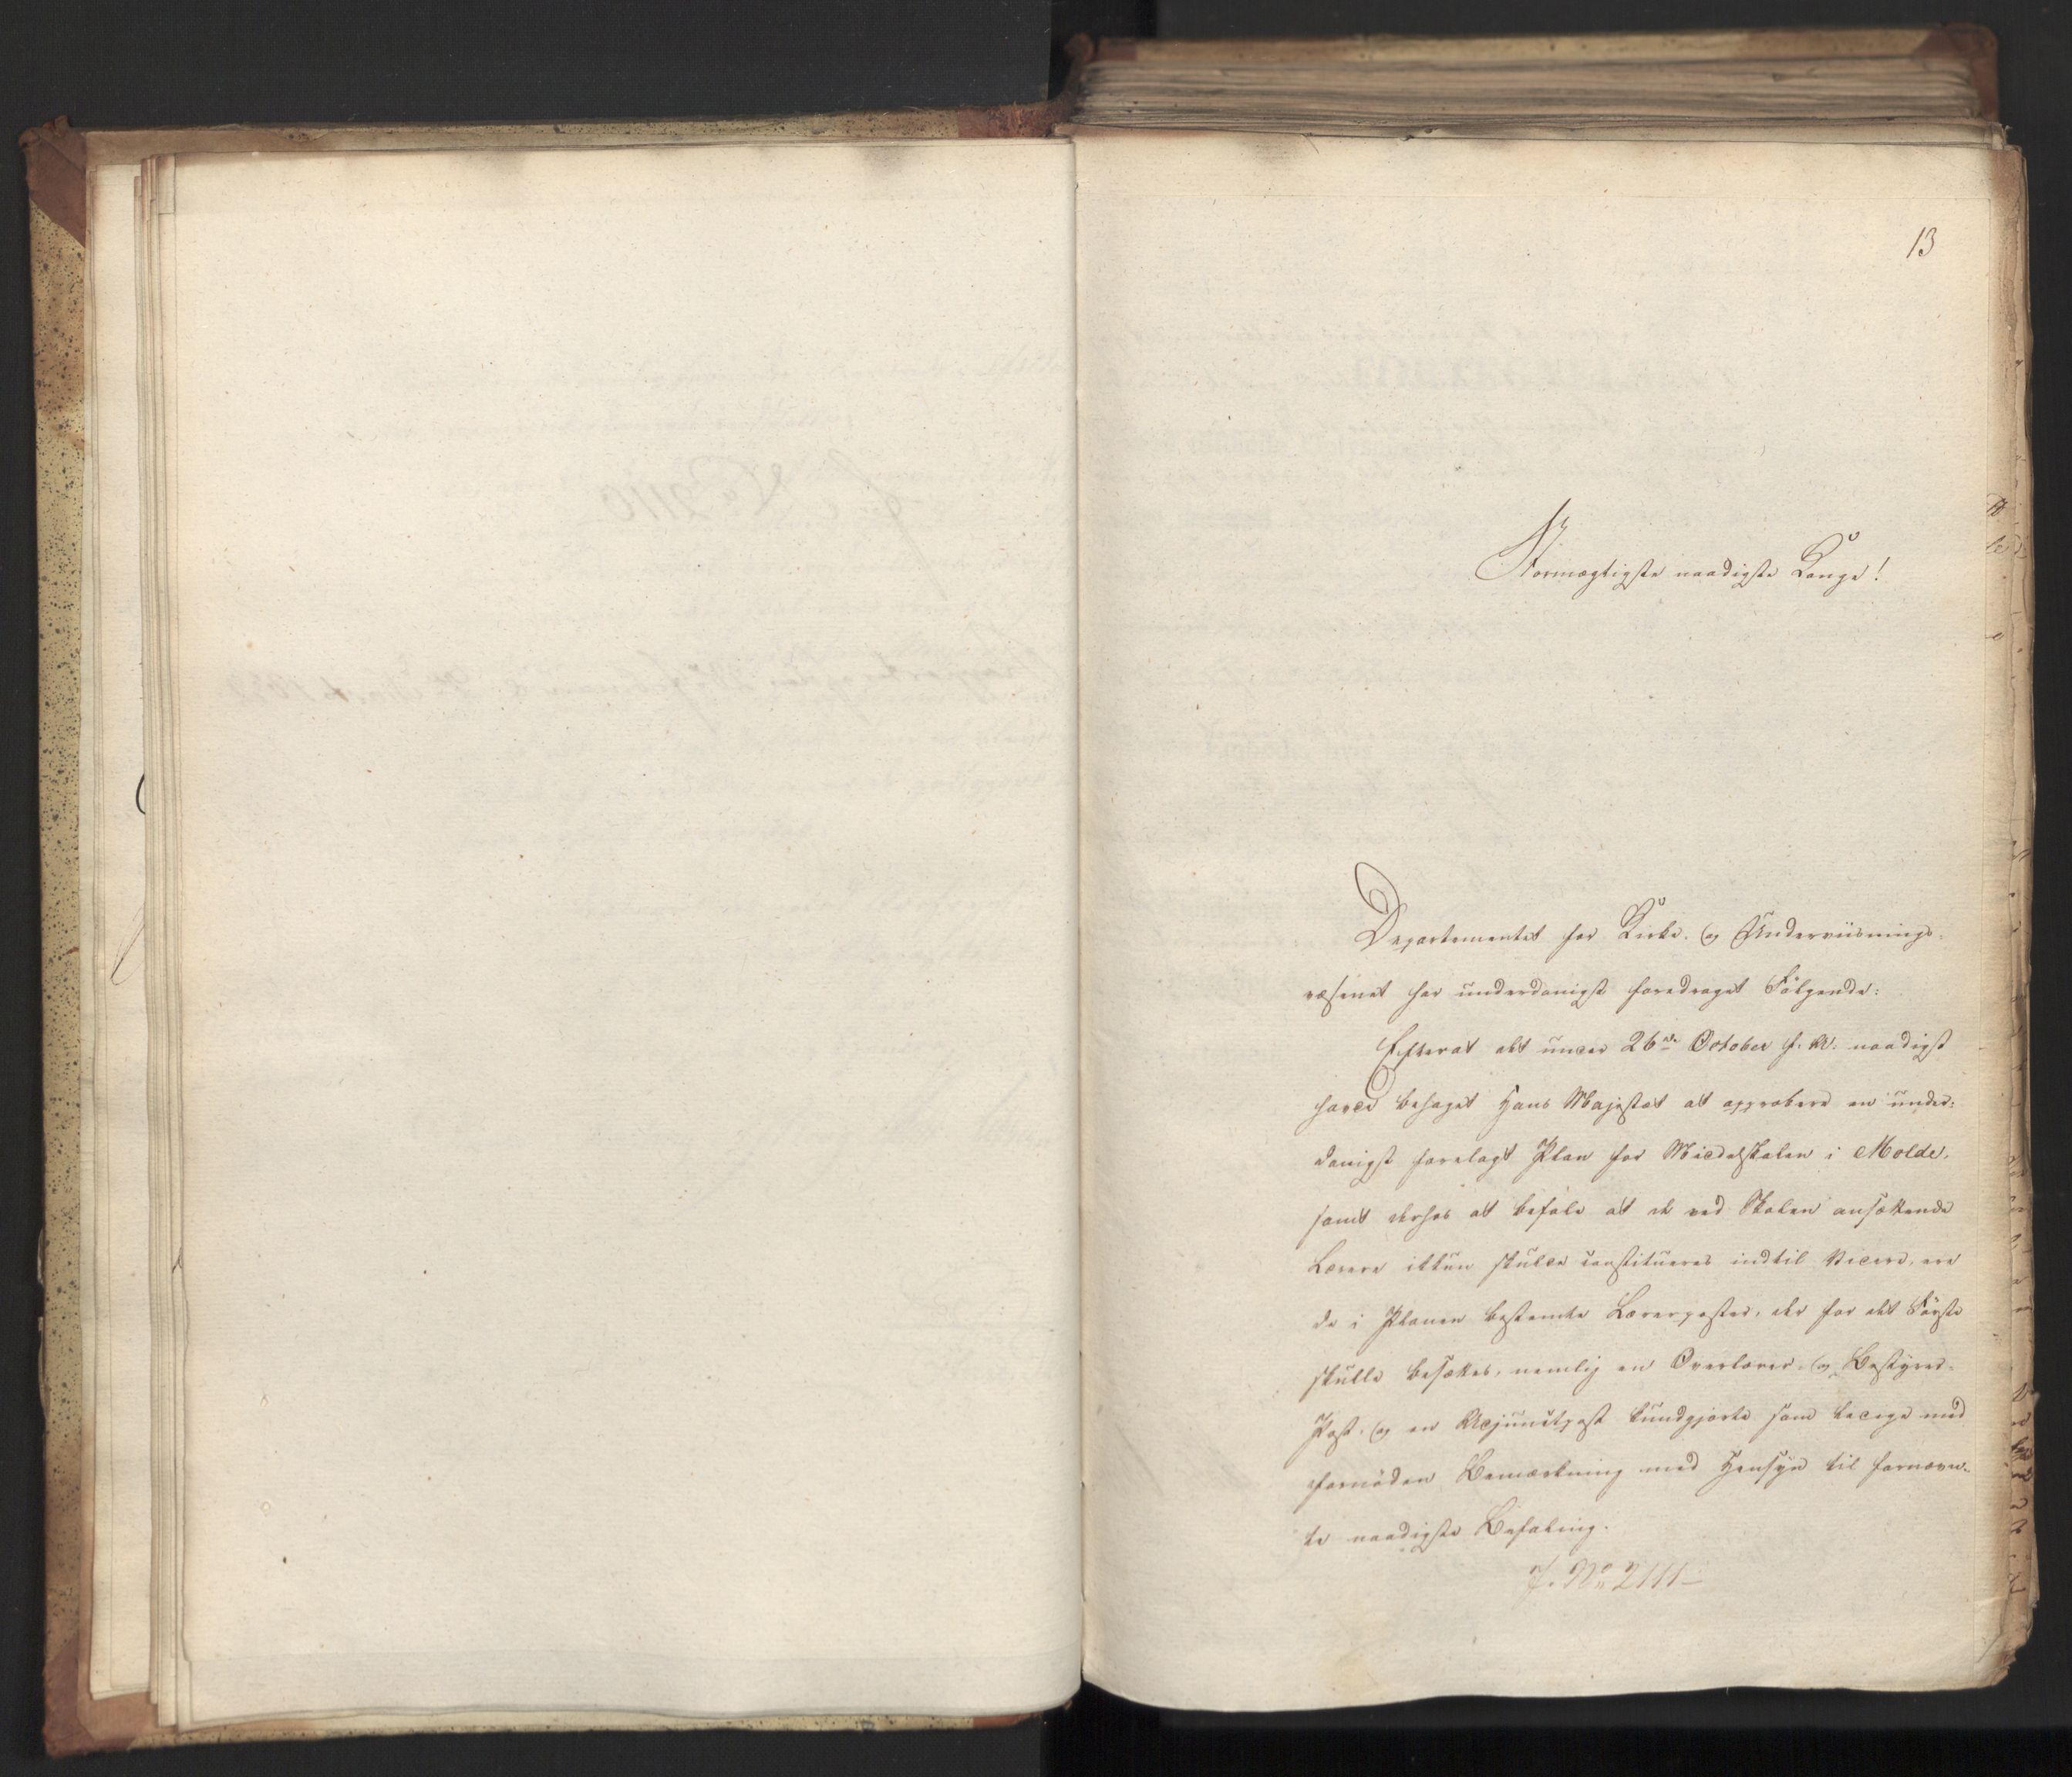 13
Stormægtigste naadigste Konge!
Departementet for Kirke- og Underviisnings-
væsenet har underdanigst foredraget Følgende:
Efterat det under 26de October f. A. naadigst
havde behaget Hans Majestæt at approbere en under-
danigst forelagt Plan for Middelskolen i Molde,
samt derhos at befale at de ved Skolen ansættende
Lærere ikkun skulde constitueres indtil Videre, ere
de i Planen bestemte Lærerposter, der for det Første
skulle besættes, nemlig en Overlærer- og Bestyrer-
Post- og en Adjunctpost kundgjorte som ledige med
fornøden Bemærkning med Hensyn til fornævn-
te naadigste Befaling.
J. No 2111-